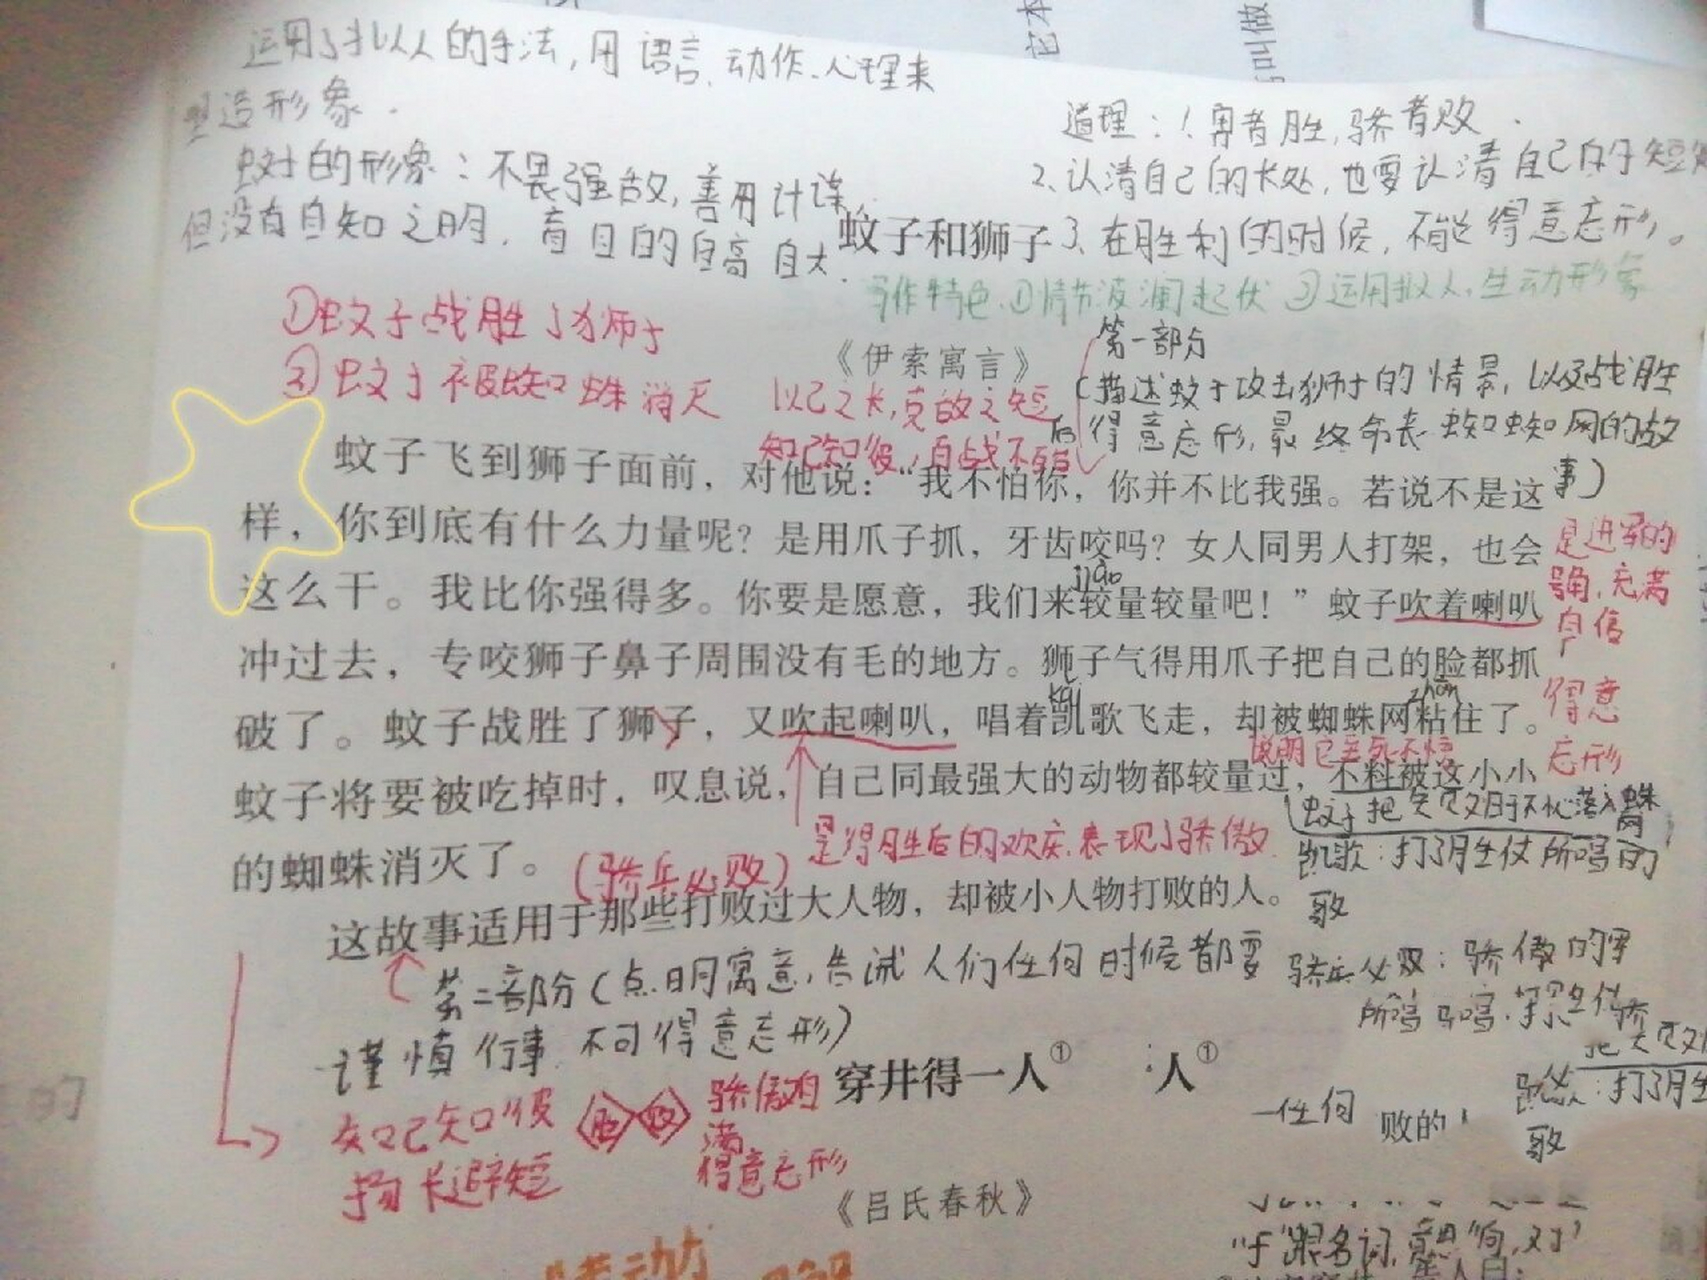 运用了拟人的手法,用语言、动作、心理来
塑造形象.
蚊子的形象:不畏强敌,善用计谋,
但没有自知之明,盲目的自高自大.
道理:1.勇者胜,骄者败.
2、认清自己的长处,也要认清自己的短
蚊子和狮子
3、在胜利的时候,不能得意忘形。
写作特色①情节波澜起伏②运用拟人,生动形象
①蚊子战胜了狮子
②蚊子被蜘蛛消灭
《伊索寓言》
第一部分
(描述蚊子攻击狮子的情景,以及战胜
后得意忘形,最终命丧蜘蛛网的故
事)
以己之长,克敌之短
知己知彼,百战不殆
蚊子飞到狮子面前,对他说:“我不怕你,你并不比我强。若说不是这
样,你到底有什么力量呢?是用爪子抓,牙齿咬吗?女人同男人打架,也会
这么干。我比你强得多。你要是愿意,我们来较量较量吧!”蚊子吹着喇叭
jiào
是进军的
号角,充满
自信
冲过去,专咬狮子鼻子周围没有毛的地方。狮子气得用爪子把自己的脸都抓
破了。蚊子战胜了狮子,又吹起喇叭,唱着凯歌飞走,却被蜘蛛网粘住了。
kǎi
zhān
得意
忘形
说明它至死不悟
蚊子将要被吃掉时,叹息说,自己同最强大的动物都较量过,不料被这小小
的蜘蛛消灭了。
(骄兵必败)
是得胜后的欢庆,表现了骄傲
凯歌:打了胜仗所唱的
歌
这故事适用于那些打败过大人物,却被小人物打败的人。
第二部分(点明寓意,告诫人们任何时候都要
谨慎行事,不可得意忘形)
骄兵必败:骄傲的军
知己知彼
扬长避短
胜 败
骄傲自
满
得意忘形
穿井得一人①
人①
任何
败的
:打了胜
歌
《吕氏春秋》